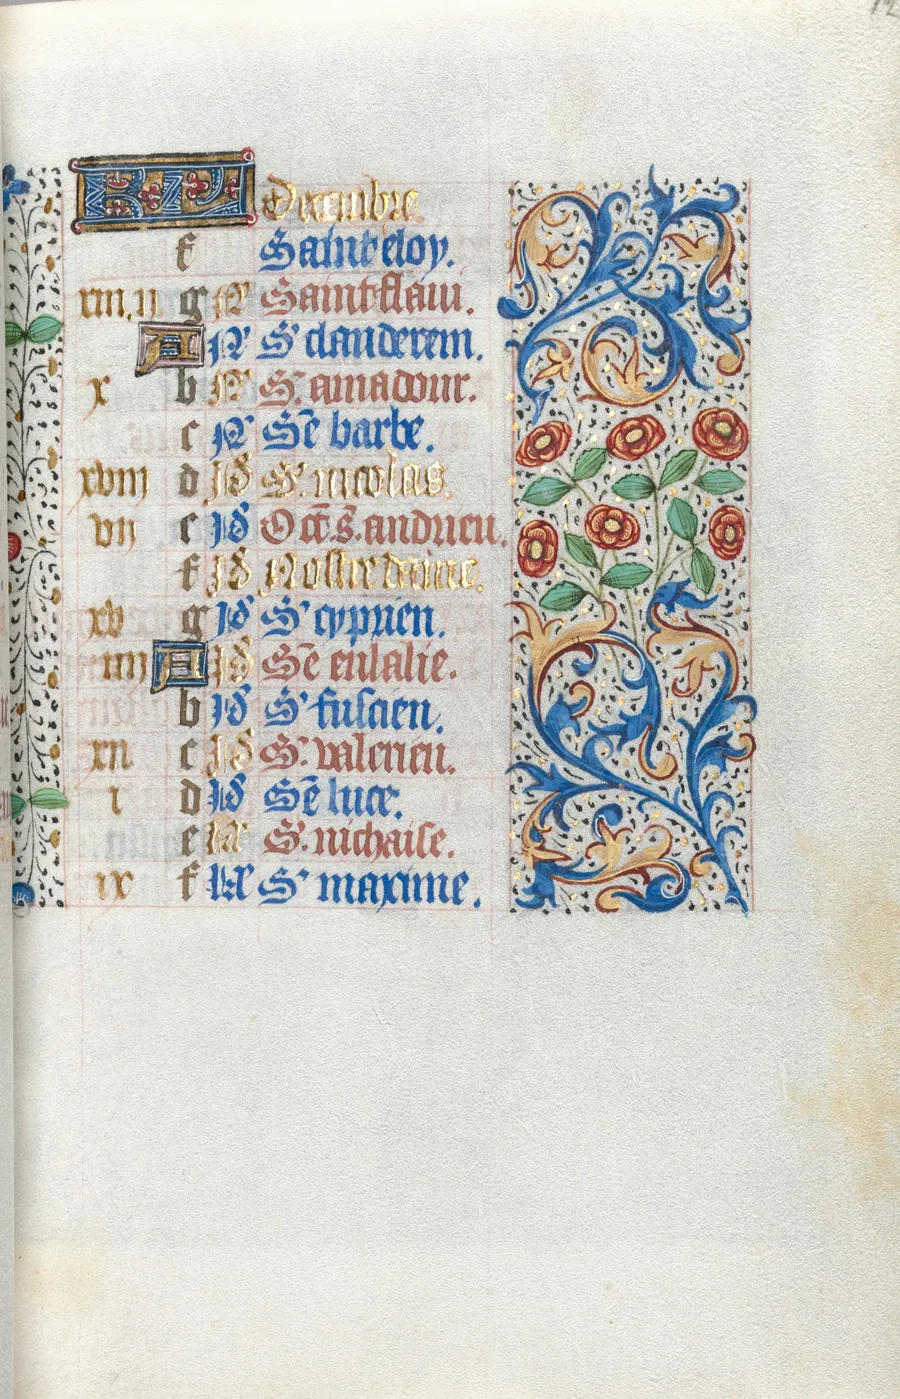 KL Decembre.
f Saint eloy.
xiii. ii g N Saint flaiu.
A N S' clauderem.
x b N S. amadour.
c N Sē barbe.
xviii d id S. nicolas.
vii e id Oct. s. andrieu.
f id Nostre dame.
xv g id S' cyprien.
iiii A id Sē eulalie.
b id S' fuscien.
xii c id S. valerieu.
i d id Sē luce.
e kl S. nichaise.
ix f kl S' maxime.
12